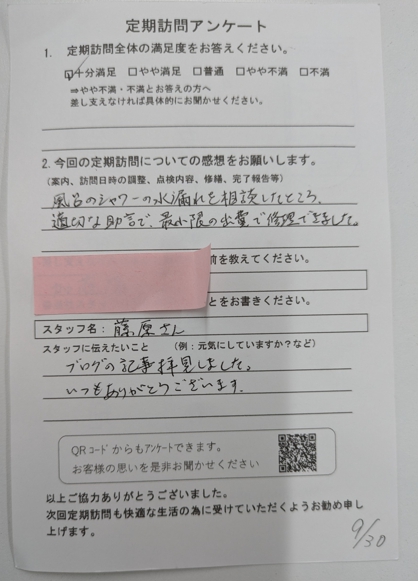 定期訪問アンケート
1. 定期訪問全体の満足度をお答えください。
☑十分満足 □やや満足 □普通 □やや不満 □不満
⇒やや不満・不満とお答えの方へ
差し支えなければ具体的にお聞かせください。
2. 今回の定期訪問についての感想をお願いします。
(案内、訪問日時の調整、点検内容、修繕、完了報告等)
風呂のシャワーの水漏れを相談したところ、
適切な助言で、最小限の出費で修理できました。
前を教えてください。
とをお書きください。
スタッフ名: 藤原さん
スタッフに伝えたいこと (例:元気にしていますか?など)
ブログの記事拝見しました。
いつもありがとうございます。
QRコードからもアンケートできます。
お客様の思いを是非お聞かせください
以上ご協力ありがとうございました。
次回定期訪問も快適な生活の為に受けていただくようお勧め申し
上げます。
9/30